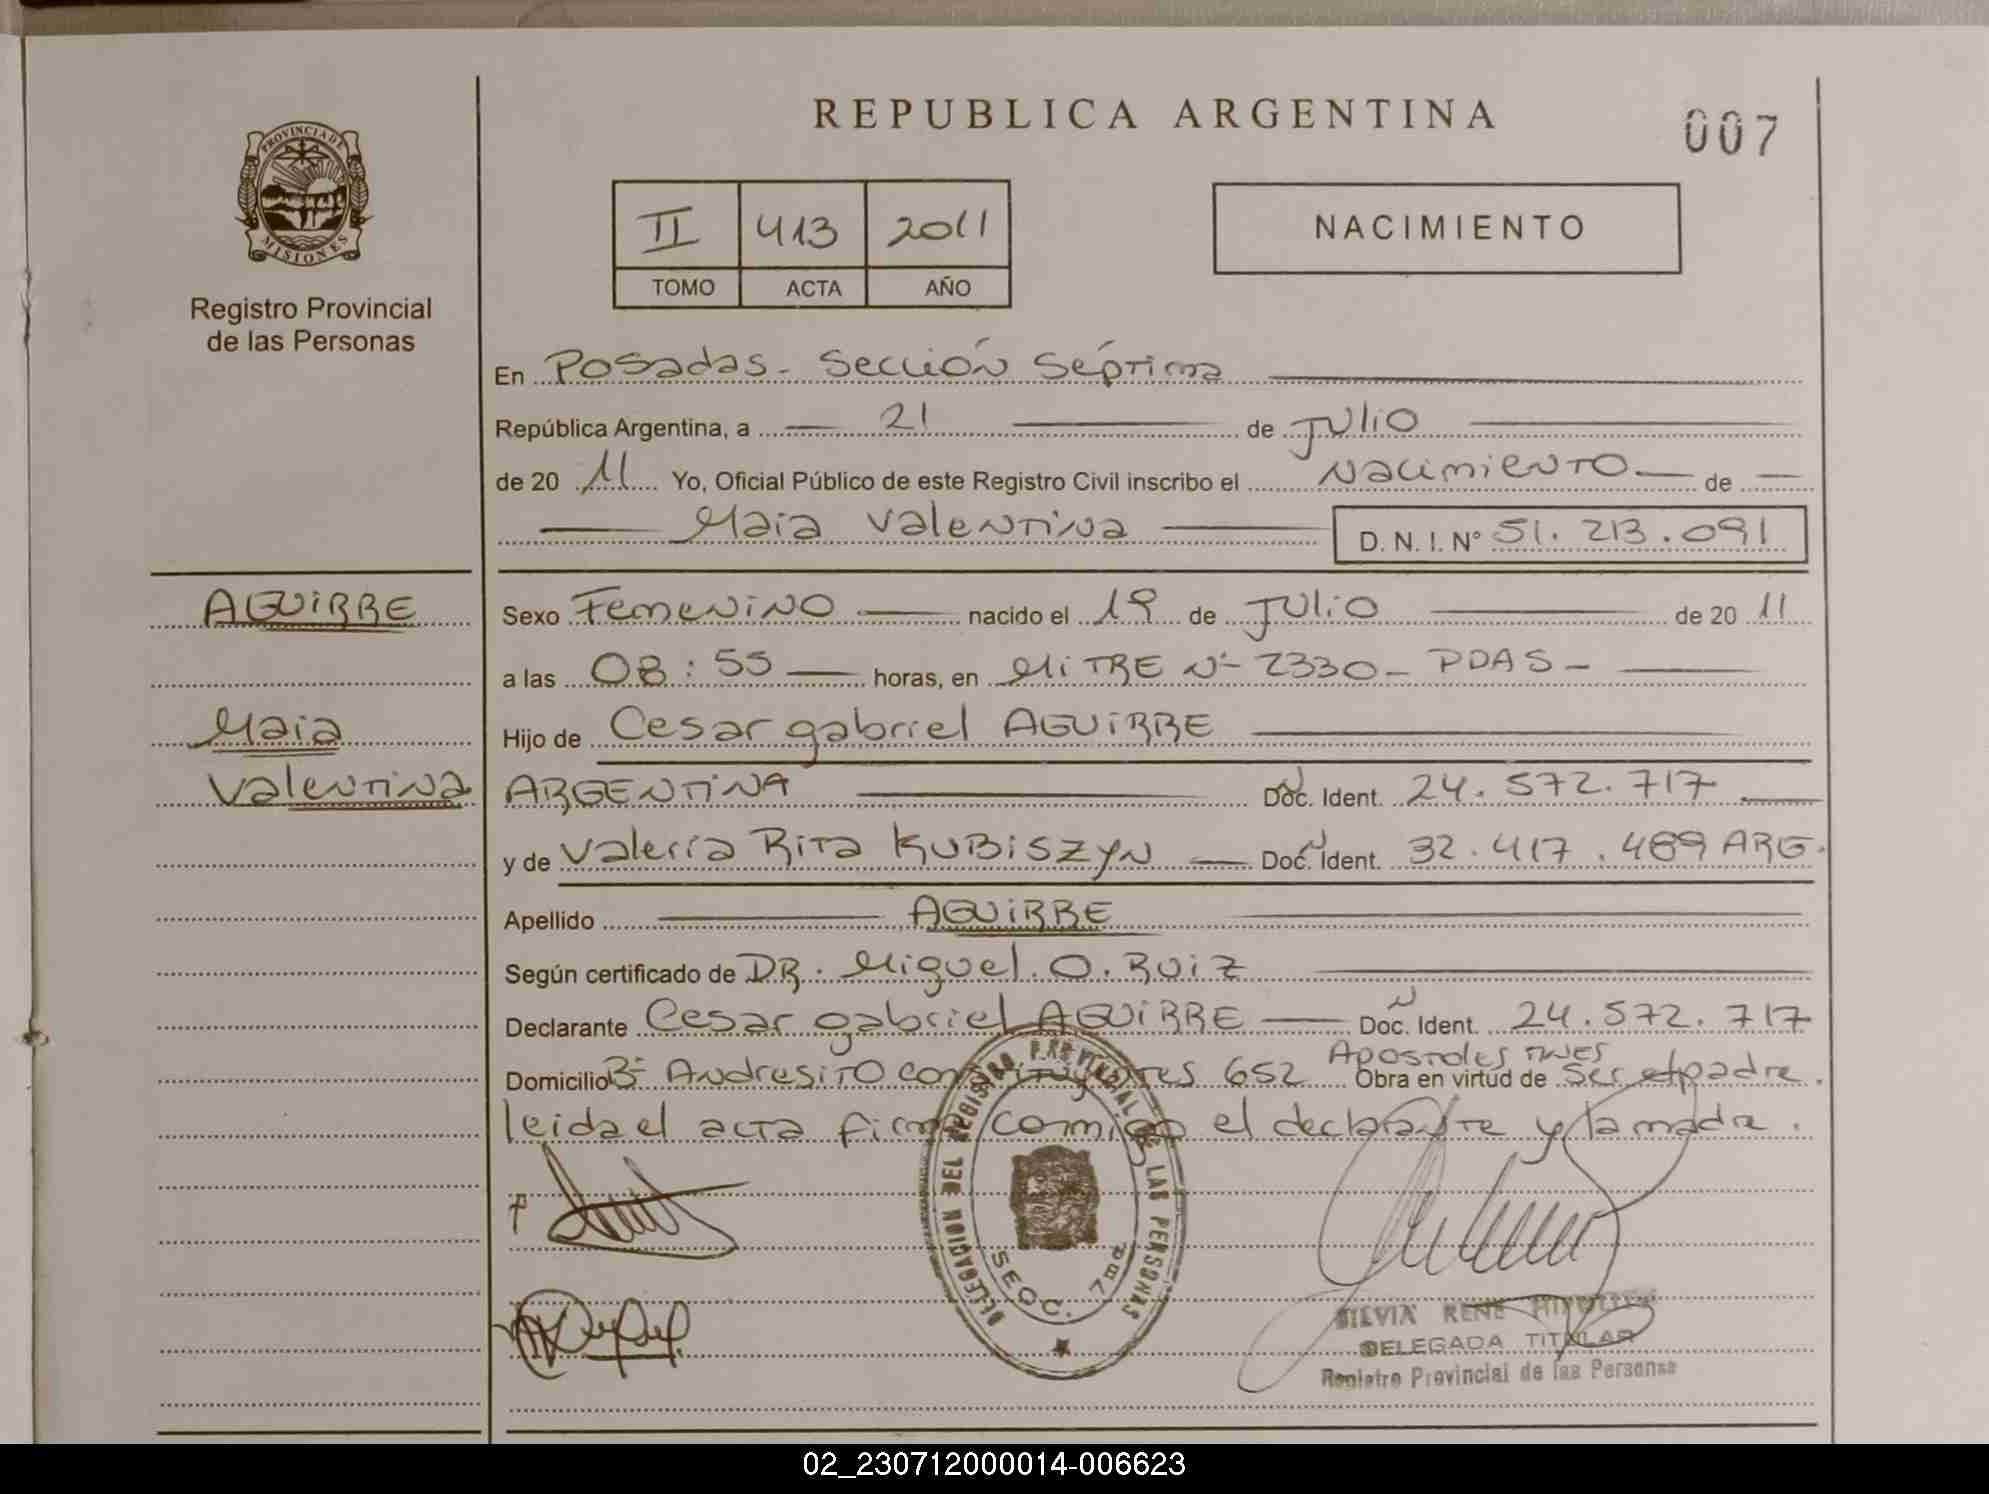 REPUBLICA ARGENTINA
007
PROVINCIA DE
MISIONES
Registro Provincial
de las Personas
II 413 2011
TOMO ACTA AÑO
NACIMIENTO
En Posadas - Sección Séptima
República Argentina, a 21 de Julio
de 20 11 Yo, Oficial Público de este Registro Civil inscribo el Nacimiento de
Maia Valentina D. N. I. N° 51.213.091
AGUIRRE
Maia
Valentina
Sexo Femenino nacido el 19 de Julio de 20 11
a las 08:55 horas, en Mitre N° 2330 - PDAS -
Hijo de Cesar gabriel AGUIRRE
ARGENTINA Doc. Ident. 24.572.717
y de Valeria Rita KUBISZYN Doc. Ident. 32.417.489 ARG.
Apellido AGUIRRE
Según certificado de DR. Miguel O. Ruiz
Declarante Cesar gabriel AGUIRRE Doc. Ident. 24.572.717
Domicilio B° Andresito constituyentes 652 Apostoles Mnes Obra en virtud de ser el padre.
leida el acta firma conmigo el declarante y la madre.
DELEGACION DEL REGISTRO PROVINCIAL DE LAS PERSONAS
SECC. 7ma
SILVIA RENE
DELEGADA TITULAR
Registro Provincial de las Personas
02_230712000014-006623